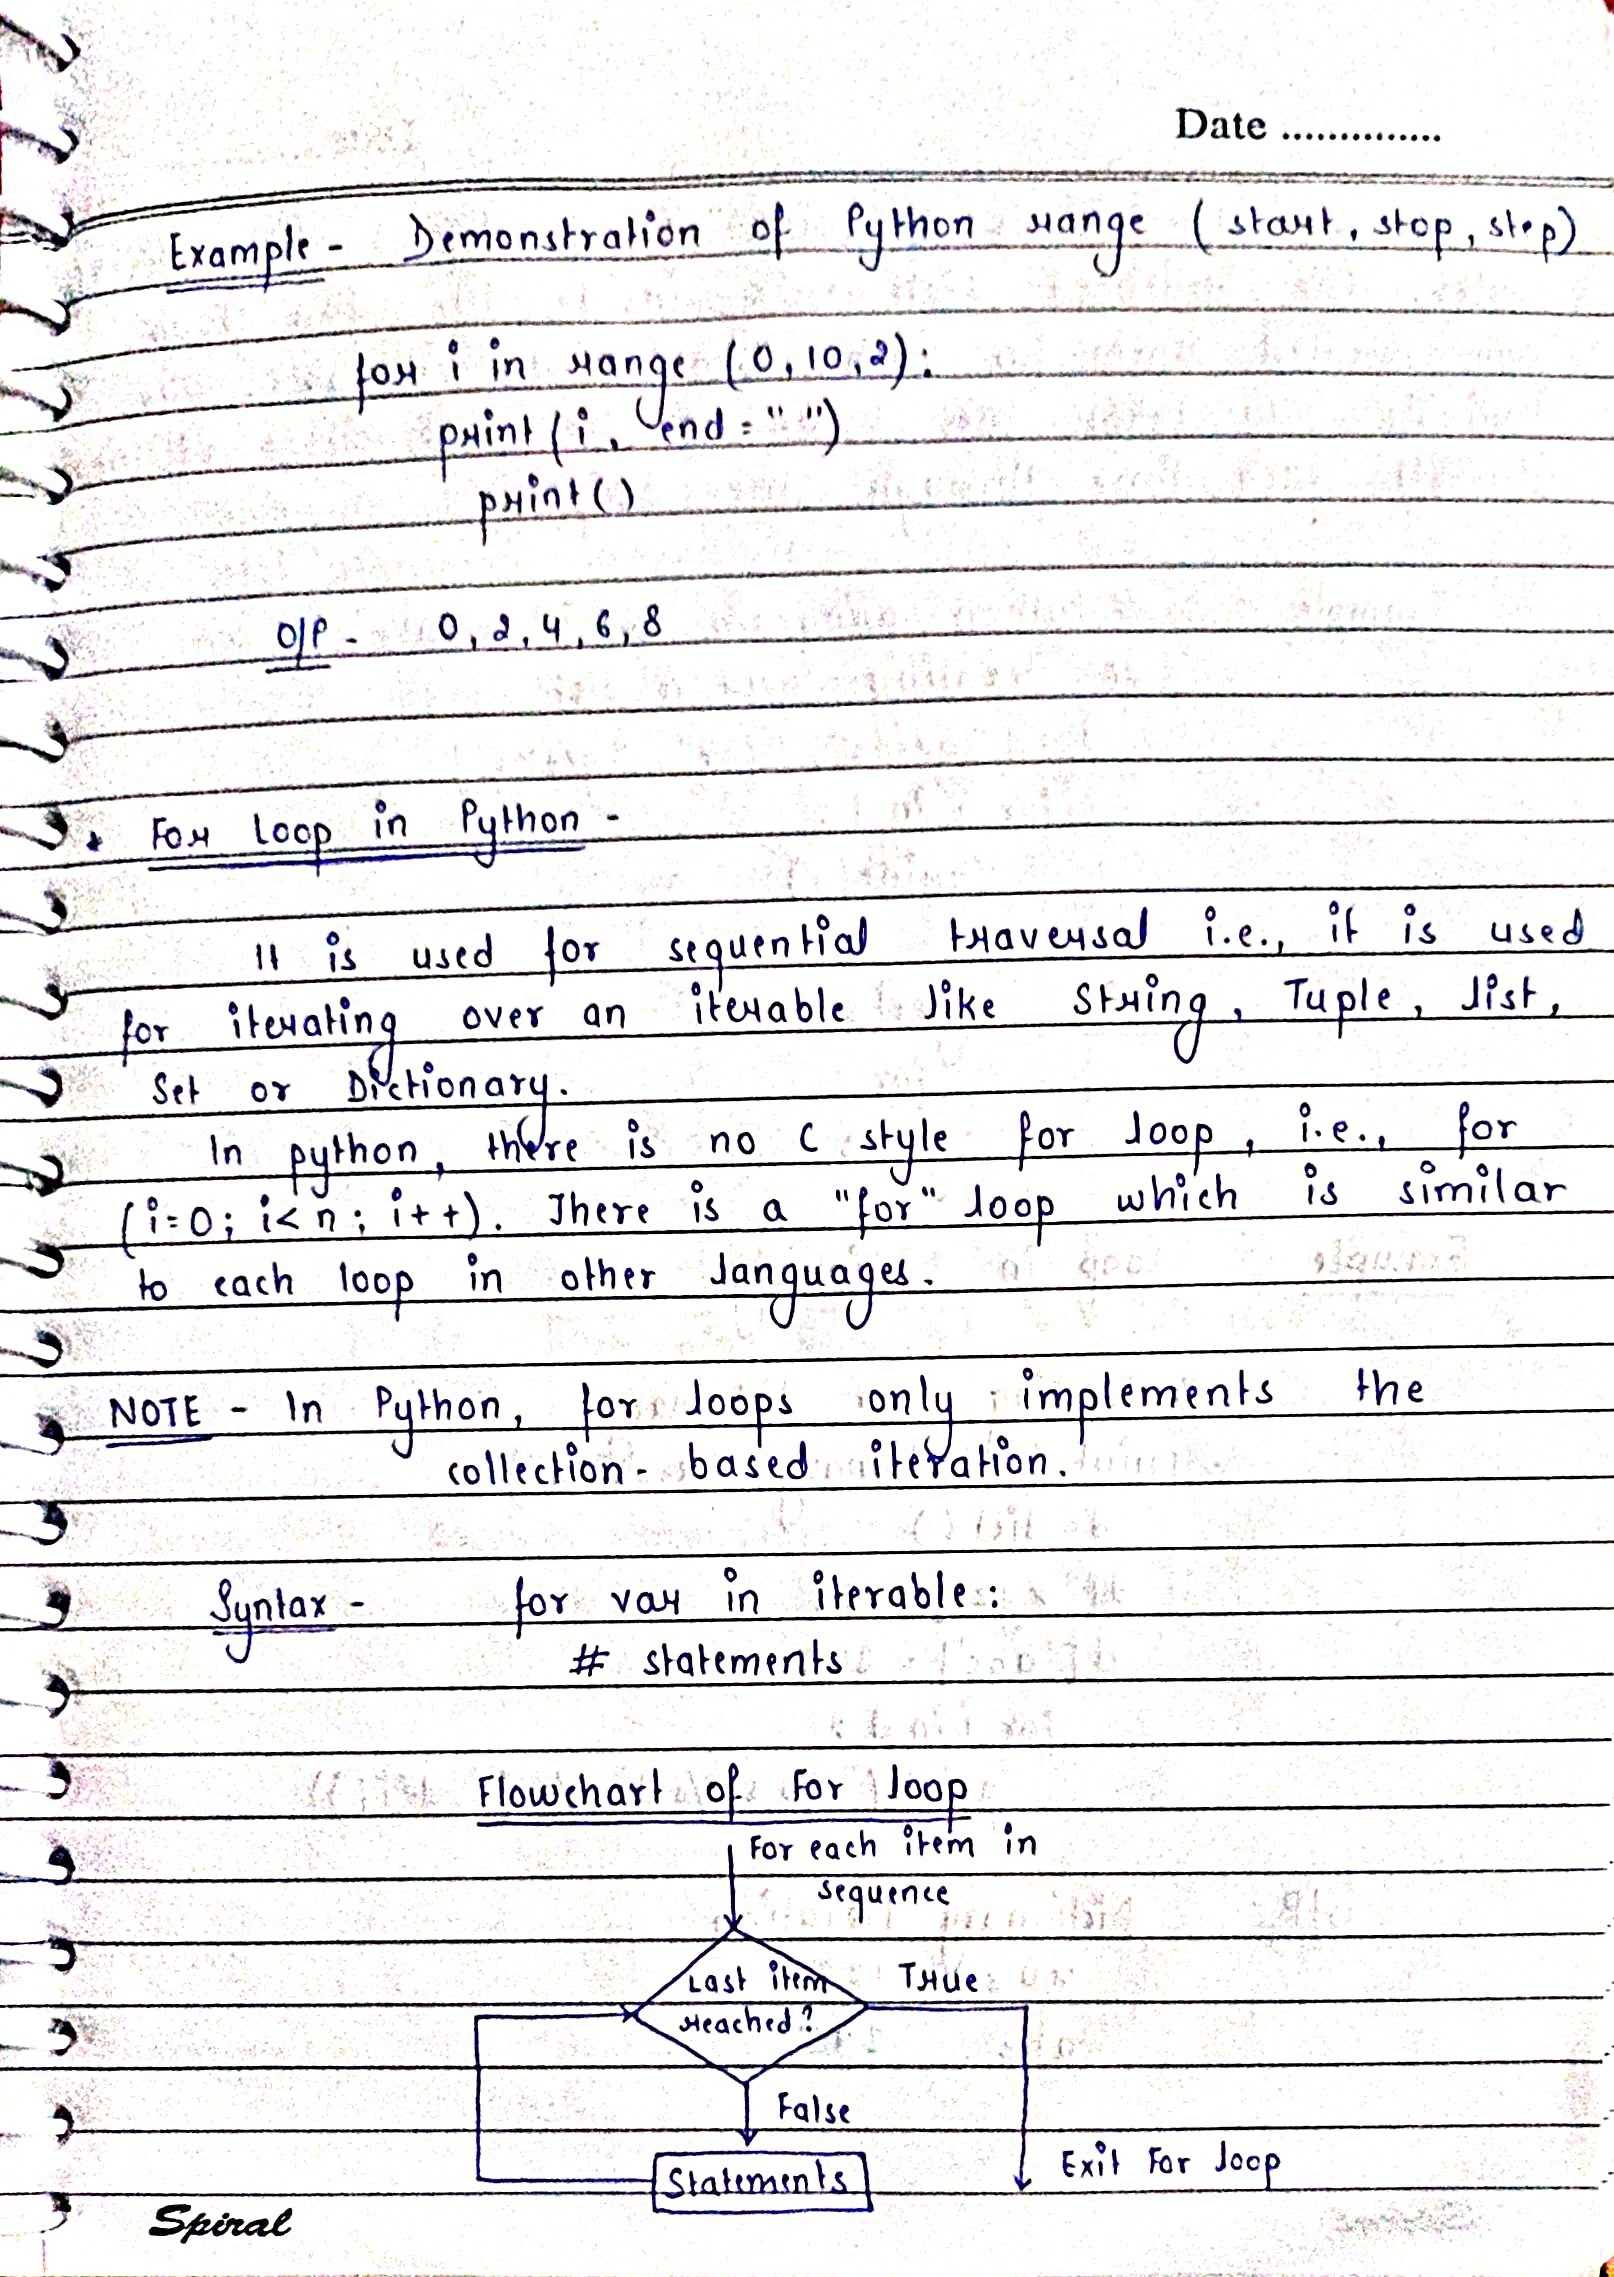 Date ..............
Example - Demonstration of Python range (start, stop, step)
for i in range (0, 10, 2):
print (i, end = " ")
print ()
O/P - 0, 2, 4, 6, 8
* For Loop in Python -
It is used for sequential traversal i.e., it is used
for iterating over an iterable like String, Tuple, list,
Set or Dictionary.
In python, there is no C style for loop, i.e., for
(i=0; i<n; i++). There is a "for" loop which is similar
to each loop in other languages.
NOTE - In Python, for loops only implements the
collection-based iteration.
Syntax - for var in iterable:
# statements
Flowchart of For loop
For each item in
sequence
Last item True
reached?
False
Exit For loop
Statements
Spiral